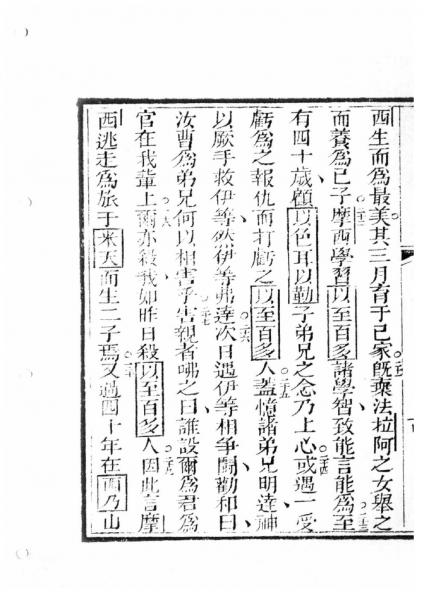 西生而為最美其三月育于已家既棄法拉阿之女舉之
而養為已子摩西學習以至百多諸學智致能言能為至
有四十歲顧以色耳以勒子弟兄之念乃上心或遇一受
虧為之報仇而打虧之以至百多人葢憶諸弟兄明達神
以厥手救伊等然伊等弗達次日遇伊等相爭鬬勸和曰
汝曹為弟兄何以相害乎害親者咈之曰誰設爾為君為
官在我輩上爾亦殺我如昨日殺以至百多人因此言摩
西逃走為旅于来天而生二子焉又過四十年在西乃山